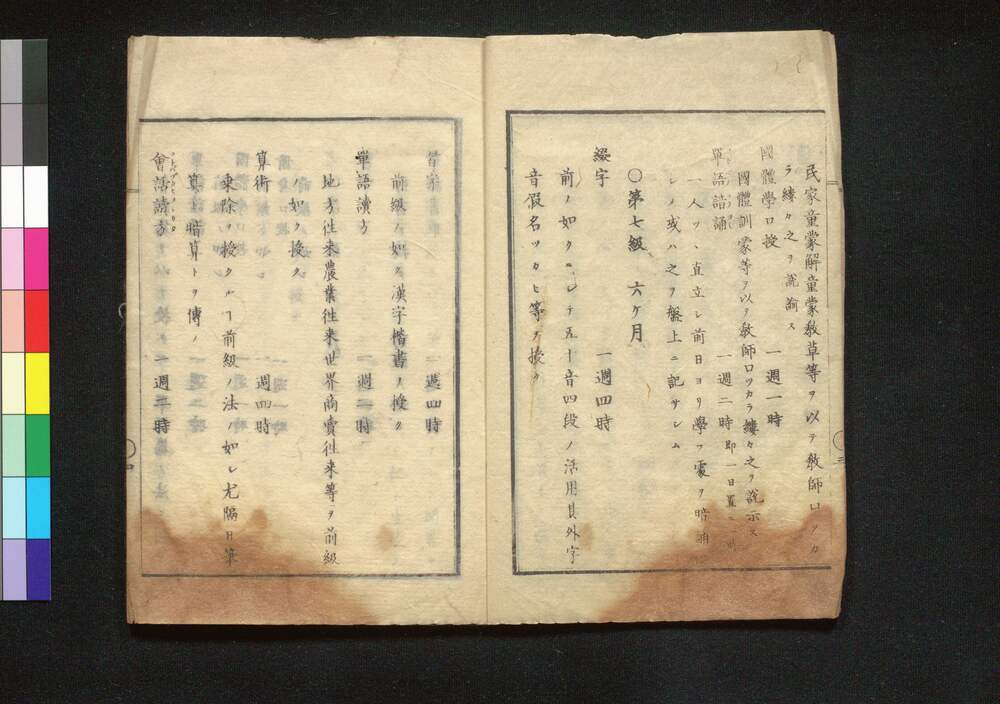 民家童蒙解童蒙教草等ヲ以テ教師口ツカ
ラ縷々之ヲ説諭ス
國體學口授 一週一時
國體訓蒙等ヲ以テ教師口ツカラ縷々之ヲ説示ス
單語諳誦 一週二時 即一日置ニ一時
一人ツヽ直立シ前日ヨリ學フ處ヲ暗誦
シメ或ハ之ヲ盤上ニ記サシム
○第七級 六ケ月
綴字 一週四時
前ノ如クニシテ五十音四段ノ活用其外字
音假名ツカヒ等ヲ授ク
三
習字 一週四時
前級ノ如ク漢字楷書ヲ授ク
單語讀方 一週二時
地方徃来農業徃来世界商賣徃来等ヲ前級
ノ如ク授ク
算術 一週四時
乗除ヲ授クルヿ前級ノ法ノ如シ尤隔日筆
算ト暗算トヲ傳フ
會話讀方 一週二時
四